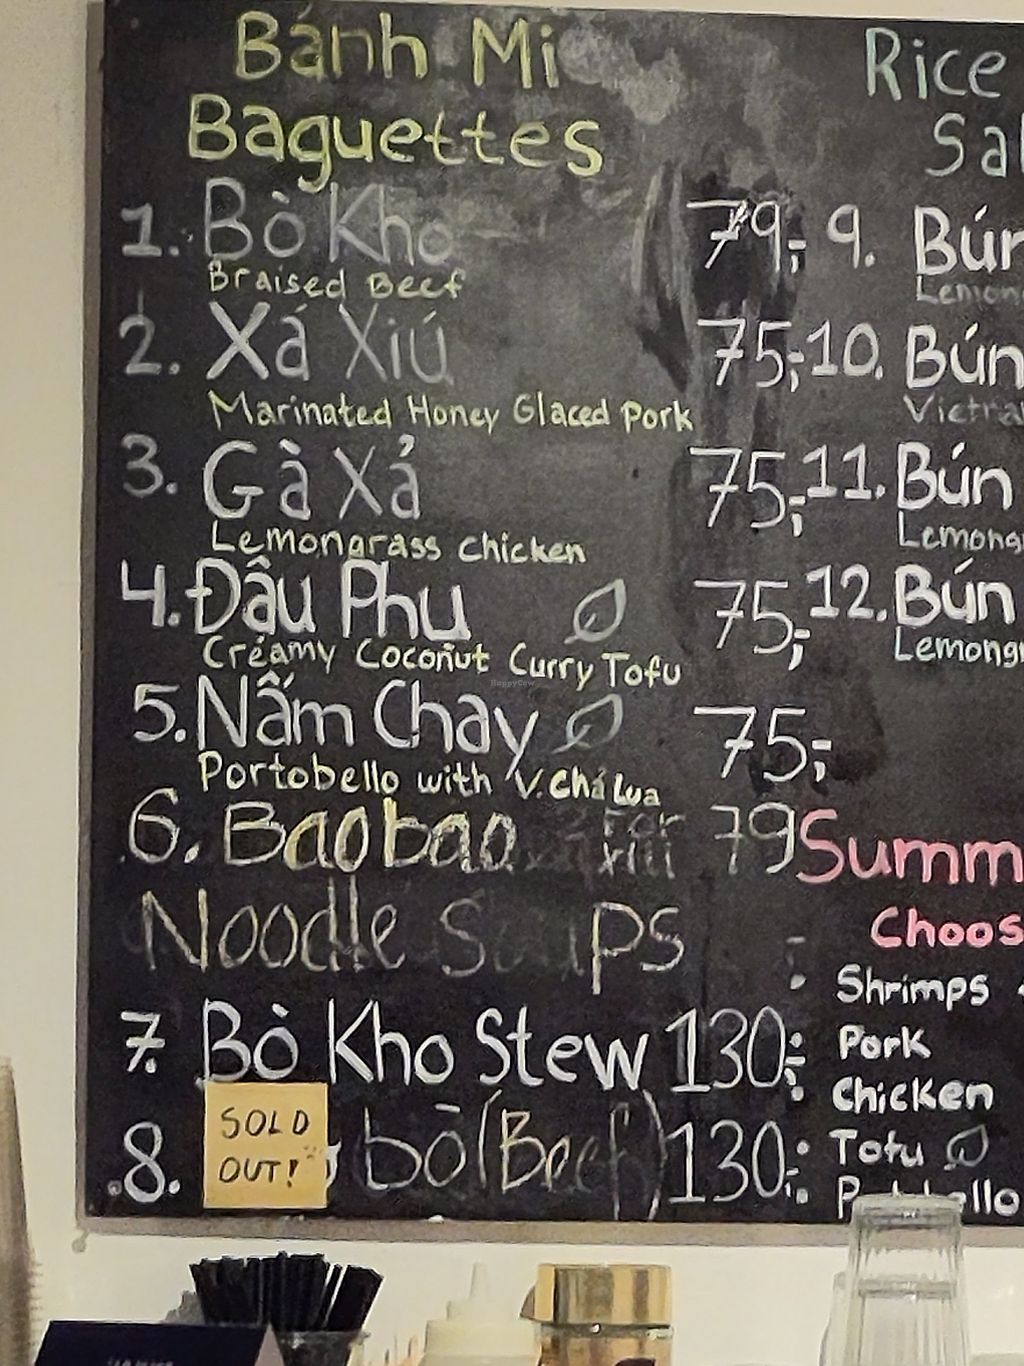 Bánh Mi
Baguettes
1. Bò Kho 79,-
Braised Beef
2. Xá Xiú 75,-
Marinated Honey Glaced Pork
3. Gà Xả 75,-
Lemongrass chicken
4. Đậu Phu 75,-
Creamy Coconut Curry Tofu
5. Nấm Chay 75,-
Portobello with V. Chá Lua
6. Baobao 2 For 79
Noodle Soups
7. Bò Kho Stew 130,-
8. bò (Beef) 130,-
SOLD
OUT!
Rice
Sal
9. Bún
Lemon
10. Bún
Vietna
11. Bún
Lemong
12. Bún
Lemong
Summ
Choos
Shrimps
Pork
Chicken
Tofu
HappyCow